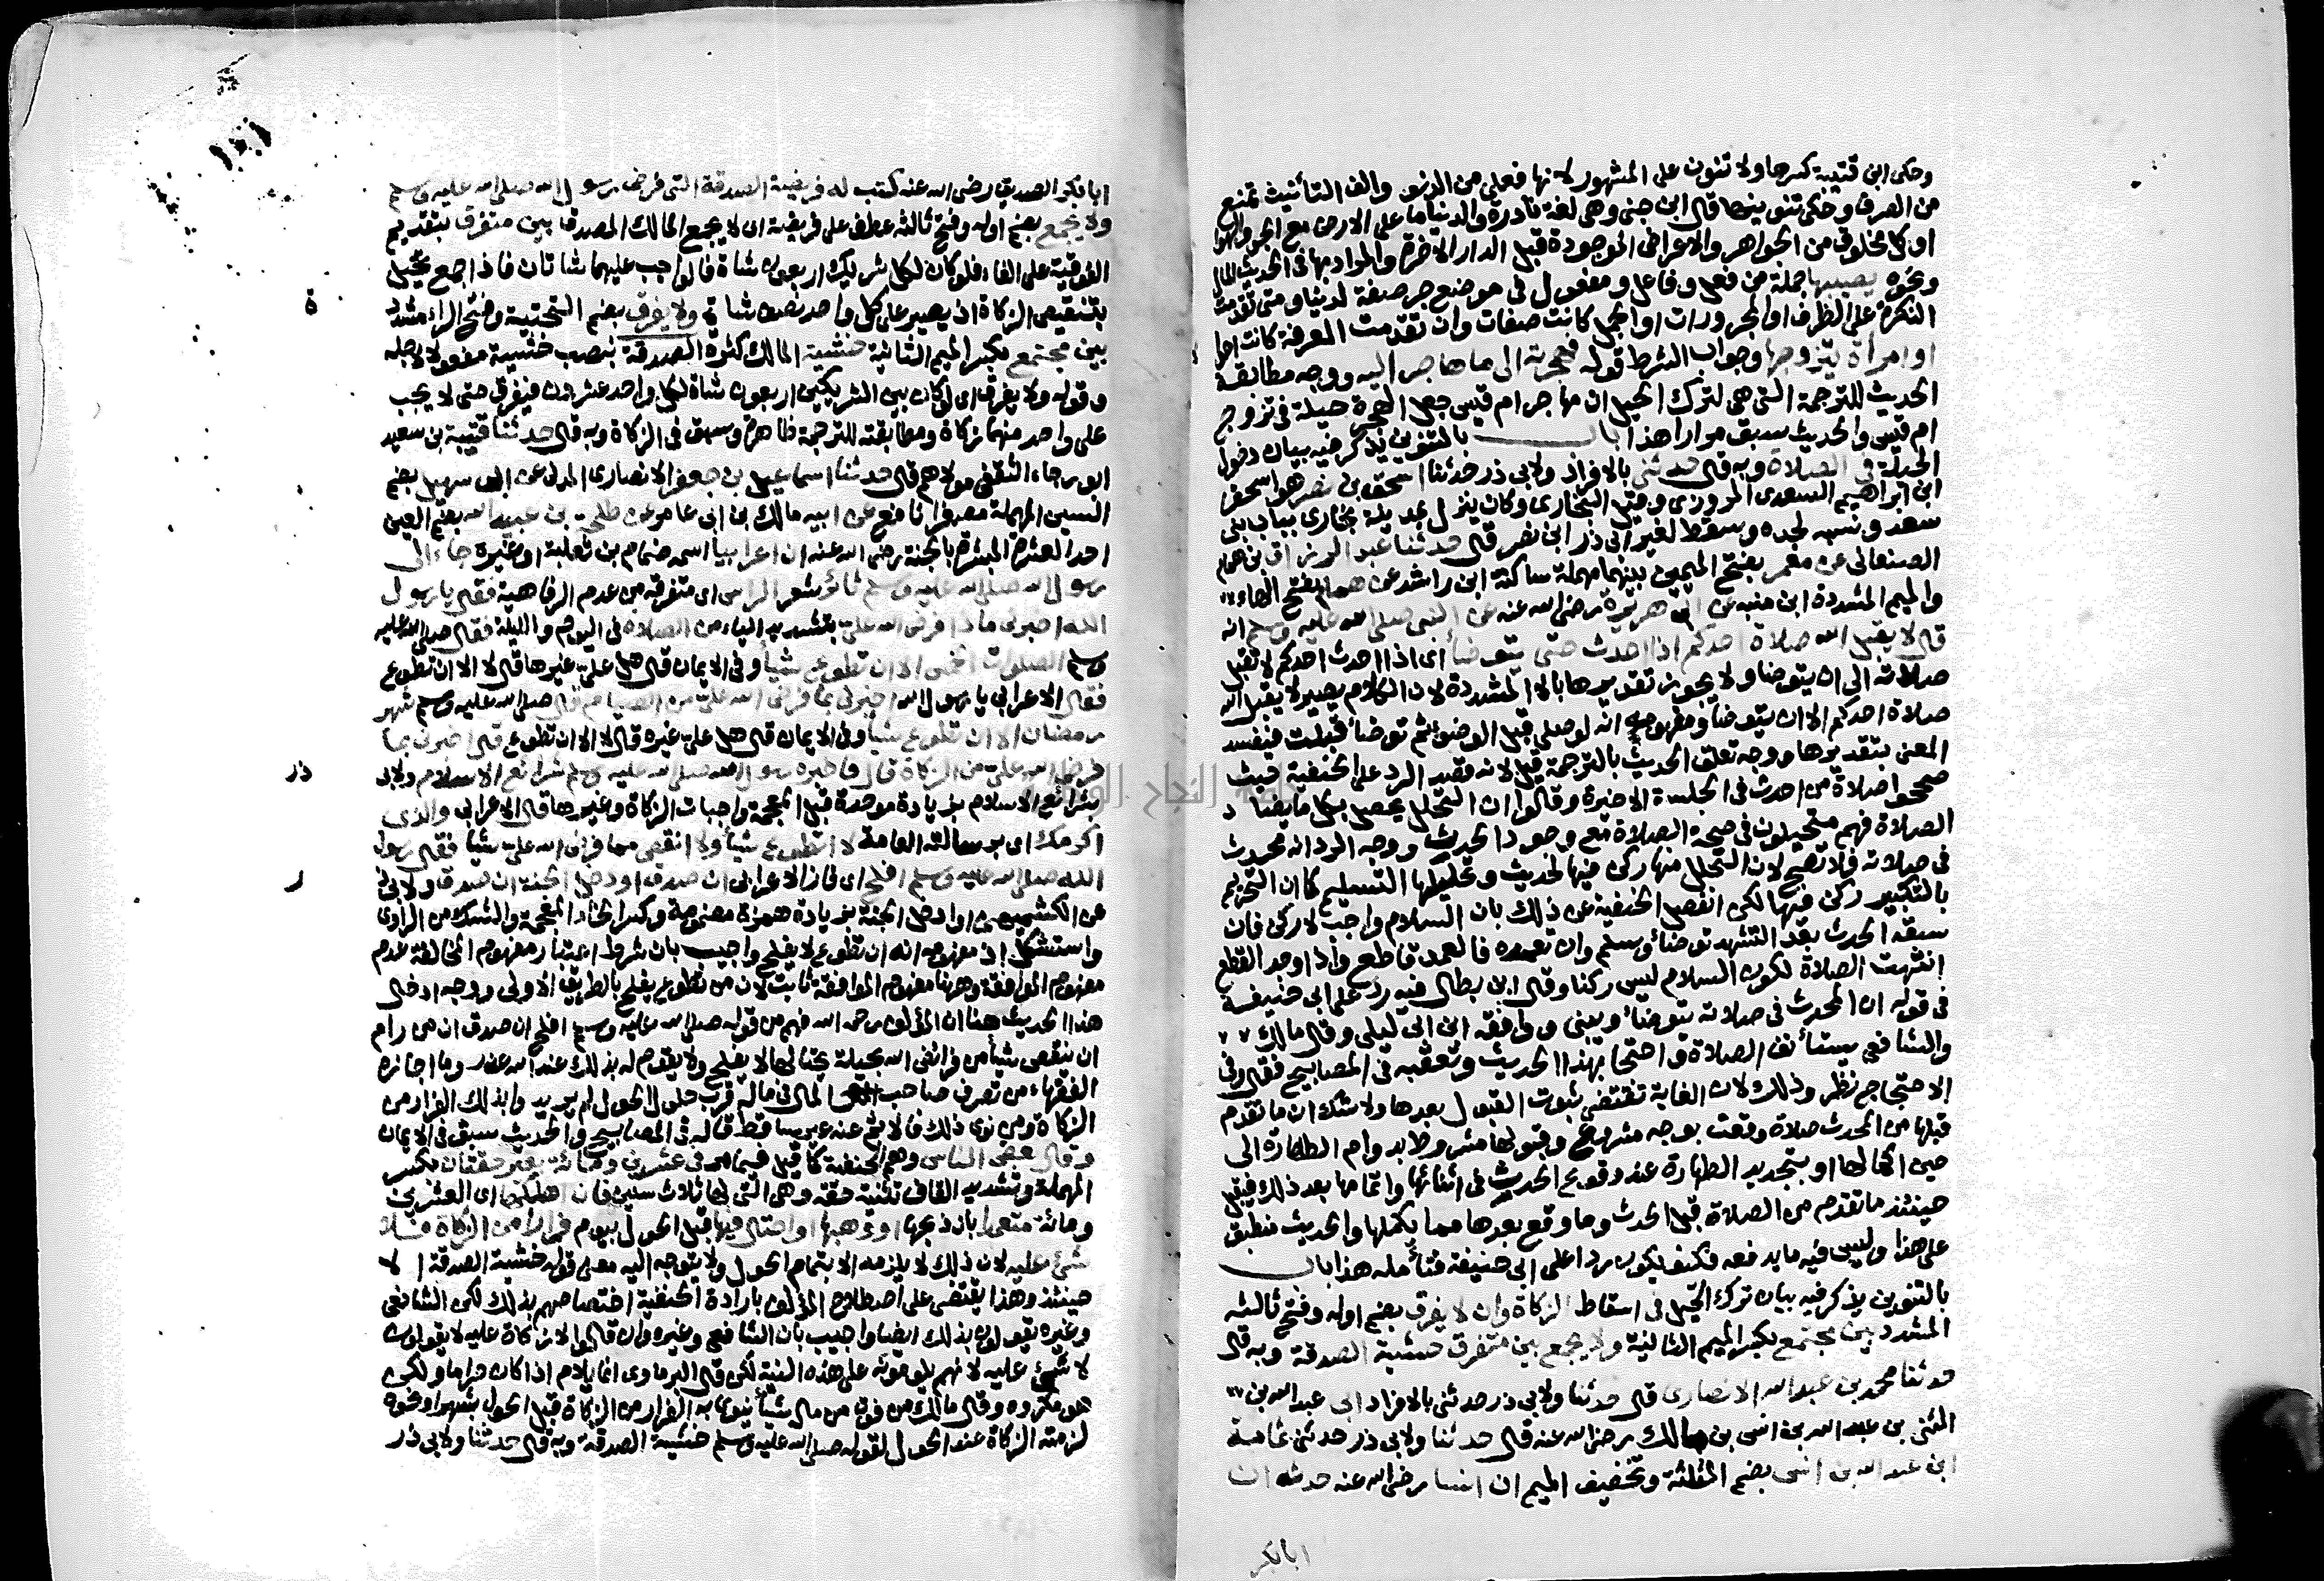 وحكى ابن قتيبة كسرها ولا تنون على المشهور لانها فعلى من الدنو والف التأنيث تمنع
من الصرف وحكى تنوينها قال ابن جنى وهى لغة نادرة والدنيا ما على الارض مع الجو والهوا
او كل مخلوق من الجواهر والاعراض الموجودة قبل الدار الاخرة والمراد بها فى الحديث المال
ونحوه يصيبها جملة من فعل وفاعل ومفعول فى موضع جر صفة لدنيا ومتى تقدمت
النكرة على الظرف او المجرورات او الجمل كانت صفات وان تقدمت المعرفة كانت احوالا
او امرأة يتزوجها وجواب الشرط قوله فهجرته الى ما هاجر اليه ووجه مطابقة
الحديث للترجمة التى هى لترك الحيل ان مهاجر ام قيس جعل الهجرة حيلة فى تزوج
ام قيس والحديث سبق مرارا هذا باب بالتنوين يذكر فيه بيان دخول
الحيلة فى الصلاة وبه قال حدثنى بالافراد ولابى ذر حدثنا اسحق بن نصر هو اسحق
ابن ابراهيم السعدى المروزى وقيل البخارى وكان ينزل بمدينة بخارى بباب بنى
سعد ونسبه لجده وسقط لغير ابى ذر ابن نصر قال حدثنا عبد الرزاق بن همام
الصنعانى عن معمر بفتح الميمين بينهما مهملة ساكنة ابن راشد عن همام بفتح الهاء
والميم المشددة ابن منبه عن ابى هريرة رضى الله عنه عن النبى صلى الله عليه وسلم انه
قال لا يقبل الله صلاة احدكم اذا احدث حتى يتوضأ اى اذا احدث احدكم لا تقبل
صلاته الى ان يتوضا ولا يجوز تقديرها بالا المشددة لان الكلام يصير لا يقبل الله
صلاة احدكم الا ان يتوضأ ومفهومه انه لو صلى قبل الوضوء ثم توضأ قبلت فيفسد
المعنى بتقديرها ووجه تعلق الحديث بالترجمة قيل لانه قصد الرد على الحنفية حيث
صححوا صلاة من احدث فى الجلسة الاخيرة وقالوا ان التحلل يحصل بكل ما يضاد
الصلاة فهم متحيلون فى صحة الصلاة مع وجود الحدث ووجه الرد انه محدث
فى صلاته فلا تصح لان التحلل منها ركن فيها لحديث وتحليلها التسليم كما ان التحريم
بالتكبير ركن فيها لكن انفصل الحنفية عن ذلك بان السلام واجب لا ركن فان
سبقه الحدث بعد التشهد توضأ وسلم وان تعمده فالعمد قاطع واذا وجد القطع
انتهت الصلاة لكون السلام ليس ركنا وقال ابن بطال فيه رد على ابى حنيفة
فى قوله ان المحدث فى صلاته يتوضأ ويبنى ووافقه ابن ابى ليلى وقال مالك
والشافعى يستأنف الصلاة واحتجا بهذا الحديث وتعقبه فى المصابيح فقال وفى
الاحتجاج نظر وذلك لان الغاية تقتضى ثبوت القبول بعدها ولا شك ان ما تقدم
قبلها من المحدث صلاة وقعت بوجه مشروع وقبولها مشروط بدوام الطهارة الى
حين اكمالها او بتجديد الطهارة عند وقوع الحدث فى اثنائها واتمامها بعد ذلك فيقبل
حينئذ ما تقدم من الصلاة قبل الحدث وما وقع بعدها مما يكملها والحديث منطبق
على هذا وليس فيه ما يدفعه فكيف يكون ردا على ابى حنيفة فتأمله هذا باب
بالتنوين يذكر فيه بيان ترك الحيل فى اسقاط الزكاة وان لا يفرق بضم اوله وفتح ثالثه
المشدد بين مجتمع بكسر الميم الثانية ولا يجمع بين متفرق خشية الصدقة وبه قال
حدثنا محمد بن عبد الله الانصارى قال حدثنا ولابى ذر حدثنى بالافراد ابى عبد الله بن
المثنى بن عبد الله بن انس بن مالك رضى الله عنه قال حدثنا ولابى ذر حدثنى ثمامة
ابن عبد الله بن انس بضم المثلثة وتخفيف الميم ان انسا رضى الله عنه حدثه ان
ابا بكر
ابا بكر الصديق رضى الله عنه كتب له فريضة الصدقة التى فرض رسول الله صلى الله عليه وسلم
ولا يجمع بضم اوله وفتح ثالثه عطف على فريضة اى لا يجمع المالك المصدق بين متفرق بتقديم
الفوقية على الفاء فلو كان لكل شريك اربعون شاة فالواجب عليهما شاتان فاذا جمع تحيل
بتنقيص الزكاة اذ يصير على كل واحد نصف شاة ولا يفرق بضم التحتية وفتح الراء مشدد
ة
بين مجتمع بكسر الميم الثانية خشية المالك كثرة الصدقة بنصب خشية مفعولا لاجله
وقوله ولا يفرق اى لو كان بين الشريكين اربعون شاة لكل واحد عشرون فيفرق حتى لا يجب
على واحد منهما زكاة ومطابقته للترجمة ظاهرة وسبق فى الزكاة وبه قال حدثنا قتيبة بن سعيد
ابو رجاء الثقفى مولاهم قال حدثنا اسماعيل بن جعفر الانصارى المدنى عن ابى سهيل بضم
السين المهملة مصغرا نافع عن ابيه مالك بن ابى عامر عن طلحة بن عبيد الله بضم العين
احد العشرة المبشرة بالجنة رضى الله عنه ان اعرابيا اسمه ضمام بن ثعلبة او غيره جاء الى
رسول الله صلى الله عليه وسلم ثائر شعر الراس اى متفرقه من عدم الرفاهية فقال يا رسول
الله اخبرنى ماذا فرض الله على بتشديد الياء من الصلاة فى اليوم والليلة فقال صلى الله عليه
وسلم الصلوات الخمس الا ان تطوع شيأ وفى الايمان قال هل على غيرها قال لا الا ان تطوع
فقال الاعرابى يا رسول الله اخبرنى بما فرض الله على من الصيام قال صلى الله عليه وسلم شهر
رمضان الا ان تطوع شيأ وفى الايمان قال هل على غيره قال لا الا ان تطوع قال اخبرنى بما
فرض الله على من الزكاة قال فاخبره رسول الله صلى الله عليه وسلم شرائع الاسلام ولابى
ذر
بشرائع الاسلام بزيادة موحدة قبل المعجمة واجبات الزكاة وغيرها قال الاعرابى والذى
اكرمك اى برسالته العامة لا اتطوع شيأ ولا انقص مما فرض الله على شيأ فقال رسول
الله صلى الله عليه وسلم افلح اى فاز الاعرابى ان صدق او دخل الجنة ان صدق ولابى ذ
ر
عن الكشميهنى او ادخل الجنة بزيادة همزة مضمومة وكسر الخاء المعجمة والشك من الراوى
واستشكل اذ مفهومه انه ان تطوع لا يفلح واجيب بان شرط اعتبار مفهوم المخالفة عدم
مفهوم الموافقة وههنا مفهوم الموافقة ثابت لان من تطوع يفلح بالطريق الاولى ووجه ادخال
هذا الحديث هنا ان المؤلف رحمه الله فهم من قوله صلى الله عليه وسلم افلح ان صدق ان من رام
ان ينقص شيأ من فرائض الله بحيلة يحتالها لا يفلح ولا يقوم له بذلك عند الله عذر وما اجازه
الفقهاء من تصرف صاحب المال فى ماله قرب حلول الحول لم يريدوا بذلك الفرار من
الزكاة ومن نوى ذلك فالاثم عنه غير ساقط قاله فى المصابيح والحديث سبق فى الايمان
وقال بعض الناس وهم الحنفية كما قيل فيما مر فى عشرين ومائة بعير حقتان بكسر
المهملة وتشديد القاف تثنية حقة وهى التى لها ثلاث سنين فان اهلكها اى العشرين
ومائة متعمدا بان ذبحها او وهبها او احتال فيها قبل الحول بيوم فرارا من الزكاة فلا
شئ عليه لان ذلك لا يلزمه الا بتمام الحول ولا يتوجه اليه معنى قوله خشية الصدقة الا
حينئذ وهذا يقتضى على اصطلاح المؤلف بارادة الحنفية اختصاصهم بذلك لكن الشافعى
وغيره يقولون بذلك ايضا واجيب بان الشافعى وغيره وان قالوا لا زكاة عليه لا يقولون
لا شئ عليه لانهم يلومونه على هذه النية لكن قال البرماوى انما يلام اذا كان حراما ولكن
هو مكروه وقال مالك من فوت من ماله شيأ ينوى به الفرار من الزكاة قبل الحول بشهر او نحوه
لزمته الزكاة عند الحول لقوله صلى الله عليه وسلم خشية الصدقة وبه قال حدثنا ولابى ذر